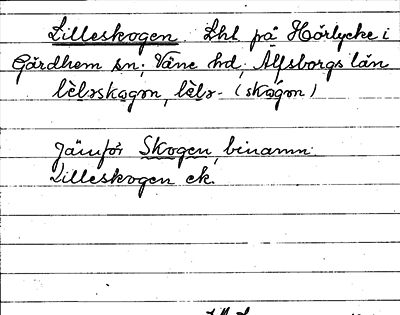 Lilleskogen Lhl på Hårlycke i
Gärdhem sn; Väne hd, Älfsborgs län
lèləskogən, lèlə- (skógən)
Jämför Skogen, binamn.
Lilleskogen ek.